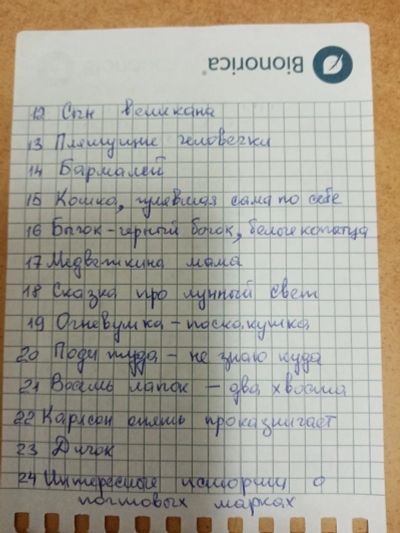 Bionorica®
12 Сын великана
13 Пляшущие человечки
14 Бармалей
15 Кошка, гулявшая сама по себе
16 Бычок - черный бочок, белые копытца
17 Медвежкина мама
18 Сказка про лунный свет
19 Огневушка - поскакушка
20 Поди туда - не знаю куда
21 Восемь лапок - два хвоста
22 Карлсон опять проказничает
23 Дичок
24 Интересные истории о
почтовых марках